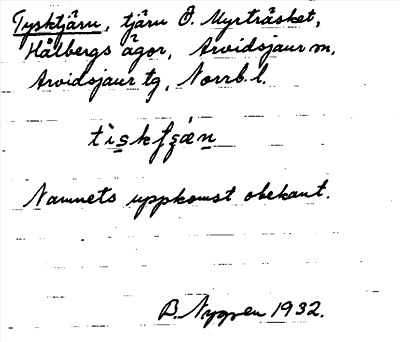 Tysktjärn, tjärn Ö. Myrträsket,
Hålbergs ägor, Arvidsjaur m.
Arvidsjaur tg, Norrb. l.
Namnets uppkomst obekant.
B. Nygren 1932.